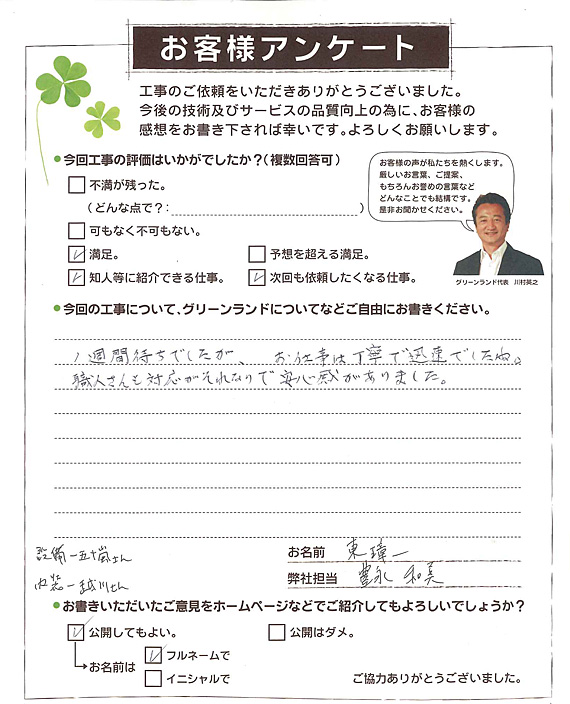 お客様アンケート
工事のご依頼をいただきありがとうございました。
今後の技術及びサービスの品質向上の為に、お客様の
感想をお書き下されば幸いです。よろしくお願いします。
●今回工事の評価はいかがでしたか?(複数回答可)
不満が残った。
(どんな点で?: )
可もなく不可もない。
満足。
予想を超える満足。
知人等に紹介できる仕事。
次回も依頼したくなる仕事。
お客様の声が私たちを熱くします。
厳しいお言葉、ご提案、
もちろんお誉めの言葉など
どんなことでも結構です。
是非お聞かせください。
グリーンランド代表 川村英之
●今回の工事について、グリーンランドについてなどご自由にお書きください。
1週間待ちでしたが、お仕事は丁寧で迅速でしたね。
職人さんも対応がそれなりで安心感がありました。
設備-五十嵐さん
内装-越川さん
お名前 東 璋一
弊社担当 豊永 和美
●お書きいただいたご意見をホームページなどでご紹介してもよろしいでしょうか?
公開してもよい。
公開はダメ。
お名前は
フルネームで
イニシャルで
ご協力ありがとうございました。